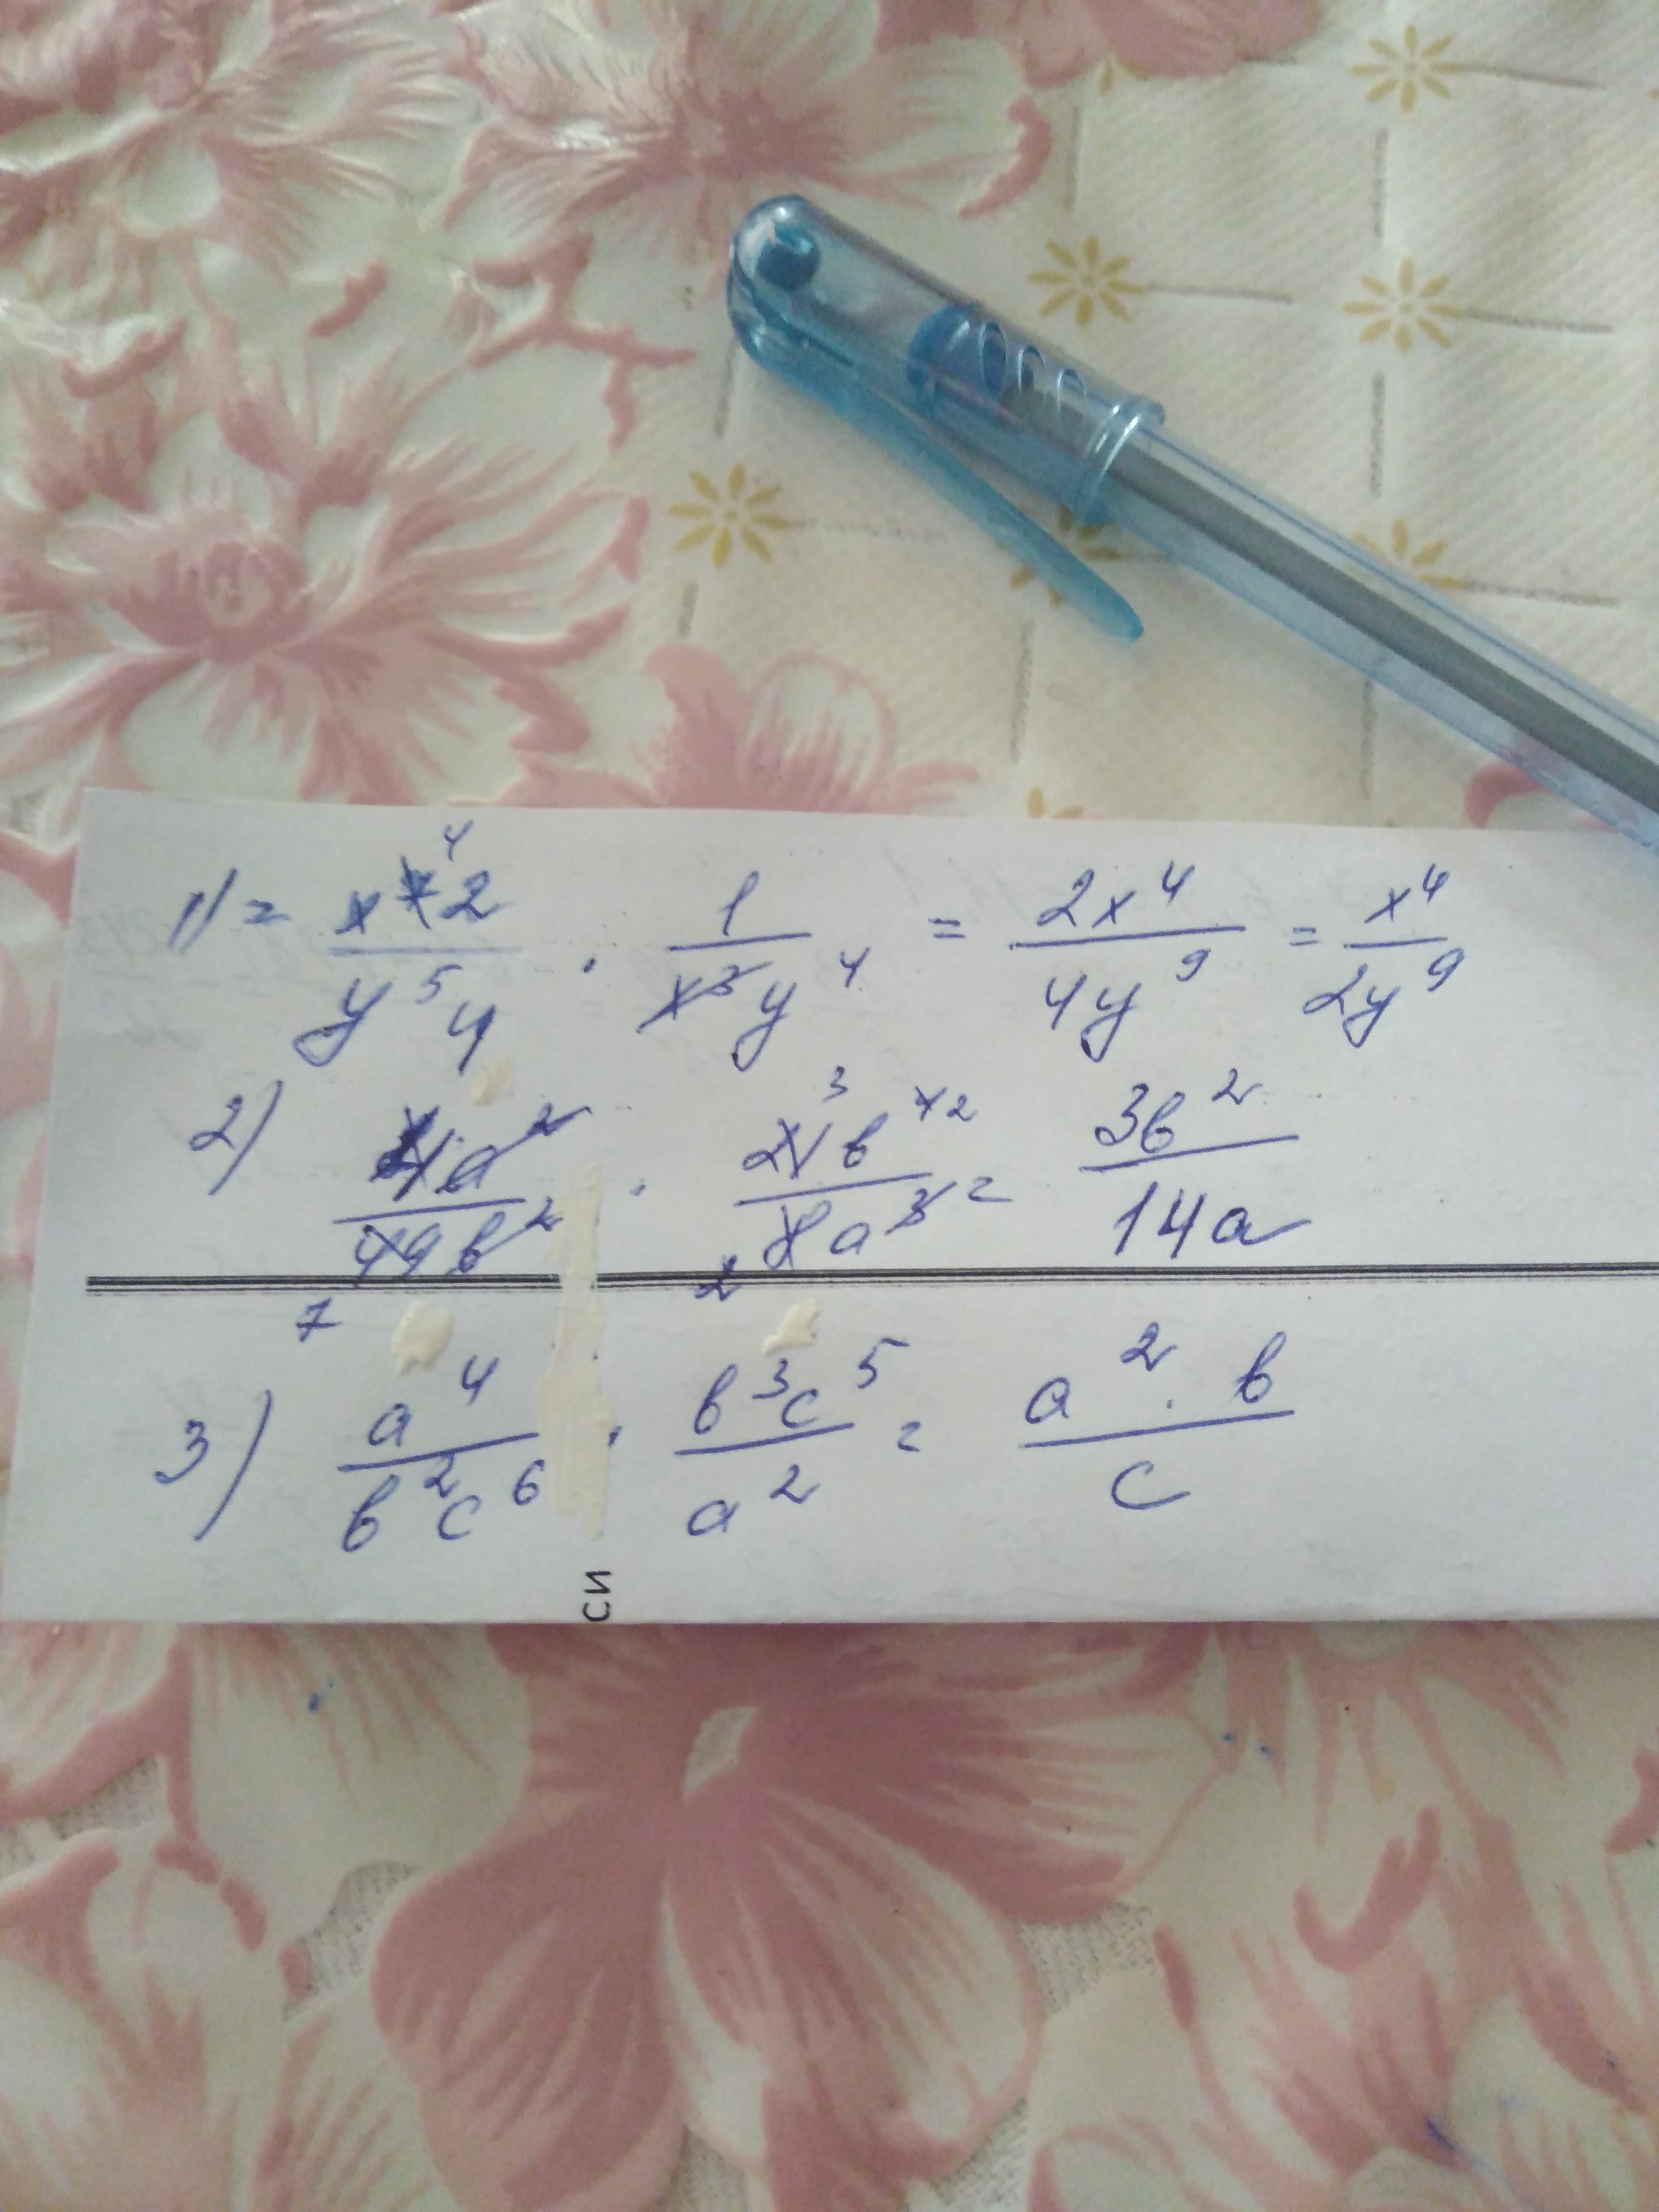 1) = x⁷⁴2/y⁵4 · 1/x³y⁴ = 2x⁴/4y⁹ = x⁴/2y⁹
2) 4a²/49в² · 21³в⁴²/8a³ = 3в²/14a
7 2
3) a⁴/в²c⁶ · в³c⁵/a² = a² · в/c
СИ